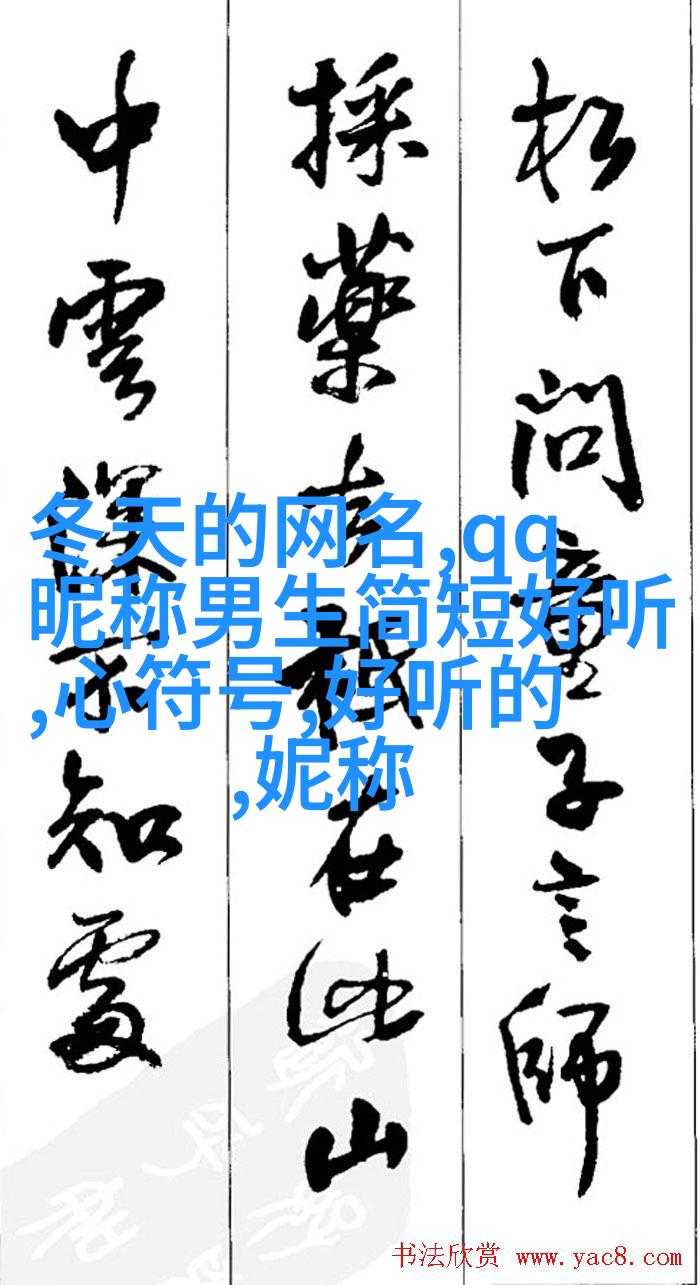 松下问童子言師
採藥去祗在此山
中雲深不知處
冬天的网名,qq
昵称男生简短好听
,心符号,好听的
,妮称
书法欣赏 www.yac8.com